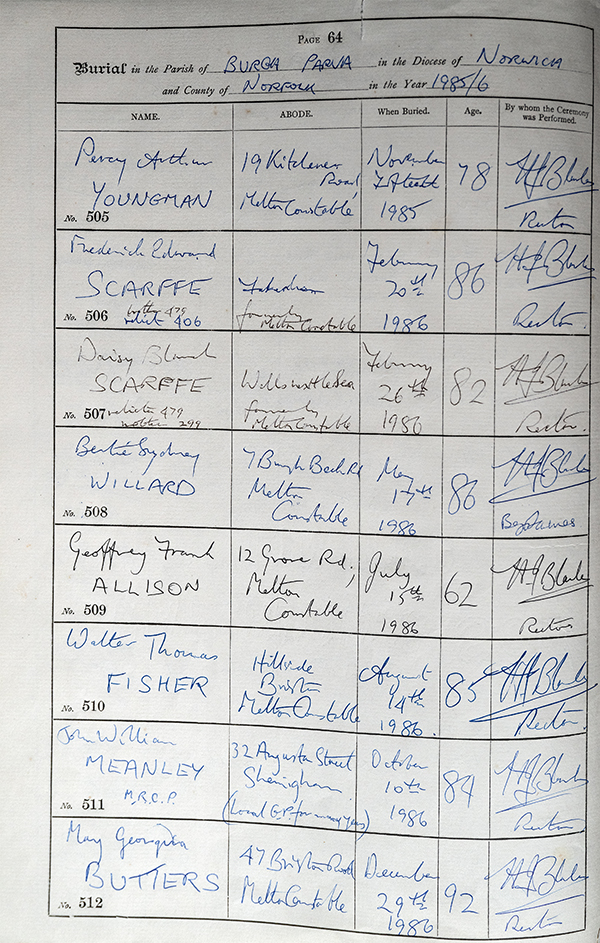 PAGE 64
Burial in the Parish of BURGH PARVA in the Diocese of NORWICH
and County of NORFOLK in the Year 1985/6
NAME. ABODE. When Buried. Age. By whom the Ceremony was Performed.
Percy Arthur
YOUNGMAN
No. 505
19 Kitchener
Road,
Melton Constable
November
1985
78
Rector
Frederick Edward
SCARFFE
479
relict 406
No. 506
Fakenham
formerly
Melton Constable
February
20th
1986
86
Rector.
Daisy Blanch
SCARFFE
No. 507 relict 479
mother 299
Wells next the Sea
formerly
Melton Constable
February
26th
1986
82
Rector.
Bertie Sydney
WILLARD
No. 508
7 Burgh Beck Rd
Melton
Constable
May
17th
1986
86
Geoffrey Frank
ALLISON
No. 509
12 Grove Rd,
Melton
Constable
July
15th
1986
62
Rector
Walter Thomas
FISHER
No. 510
Hillside
Briston
Melton Constable
August
14th
1986.
85
Rector.
John William
MEANLEY
M.R.C.P.
No. 511
32 Augusta Street
Sheringham
(Local G.P. for many years)
October
10th
1986
84
Rector
May Georgina
BUTTERS
No. 512
47 Briston Road
Melton Constable
December
29th
1986
92
Rector